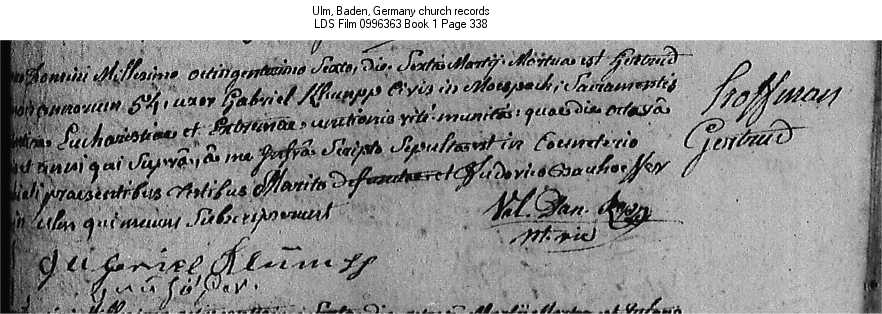 Ulm, Baden, Germany church records
LDS Film 0996363 Book 1 Page 338
Domini Millesimo octingentesimo Sexto, die Sexta Martij Mortua est Gertrud
annorum 54, uxor Gabriel Klumpp Civis in Moespach; Sacramentis
Eucharistiae et Extremae unctionis rité munita: quae die octavâ
anni qui Suprâ, â me Infrâ Scripto Sepulta est in Coemeterio
praesentibus testibus Marito et Ludovico
in Ulm qui mecum Subscripserunt
Hoffman
Gertrud
Val. Dan.
Gabriel Klumpp